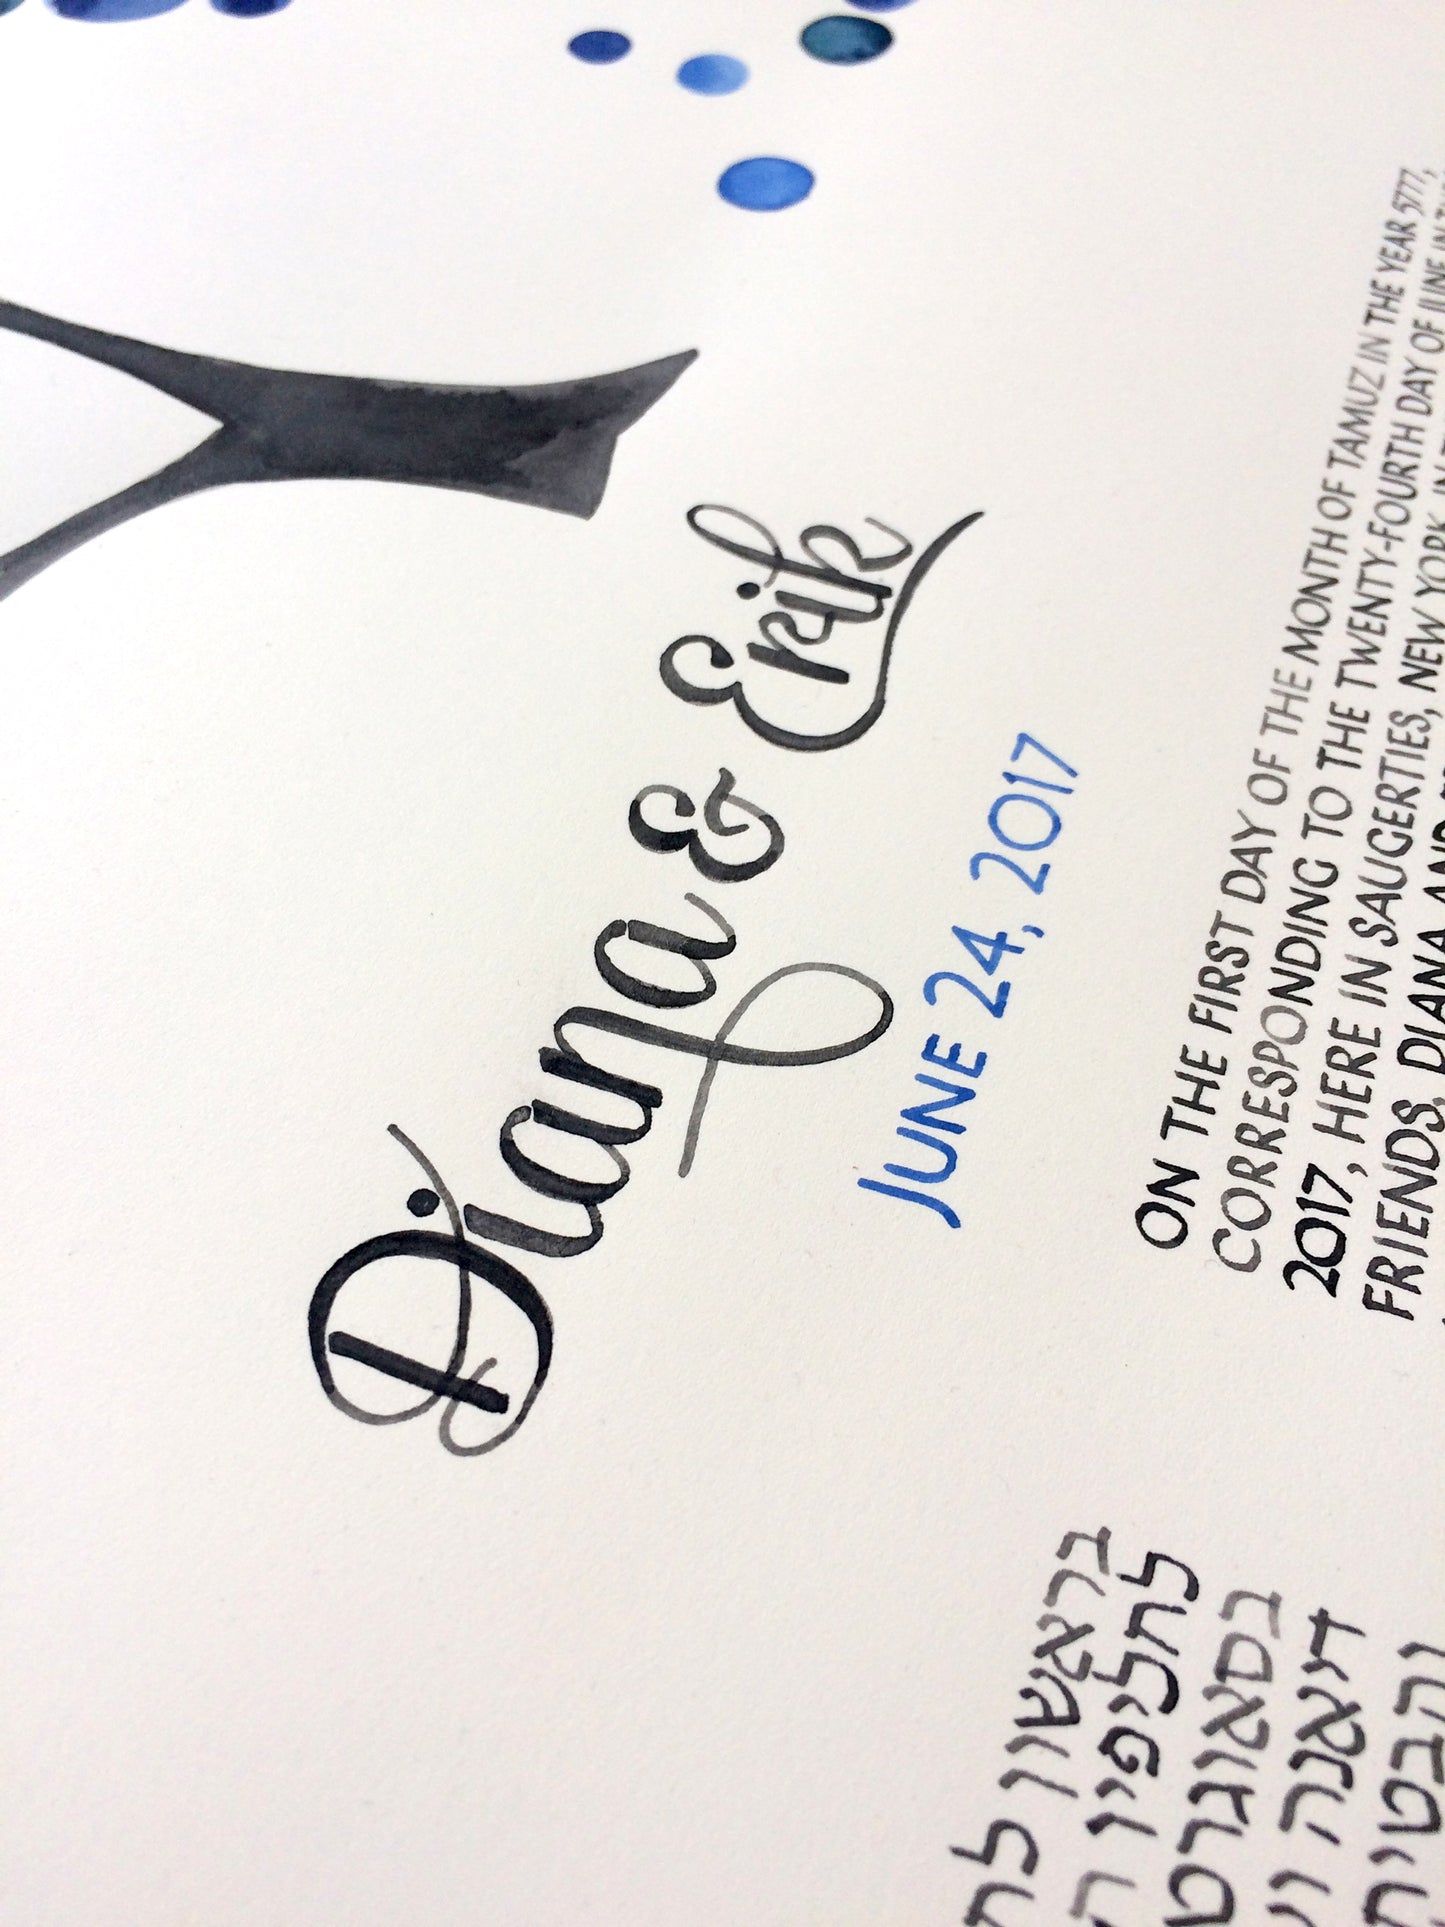 Diana & Erik
JUNE 24, 2017
ON THE FIRST DAY OF THE MONTH OF TAMUZ IN THE YEAR 5777,
CORRESPONDING TO THE TWENTY-FOURTH DAY OF JUNE IN
2017, HERE IN SAUGERTIES, NEW YORK, IN
FRIENDS, DIANA AND
בראשון
לחליפיו
דיאנה